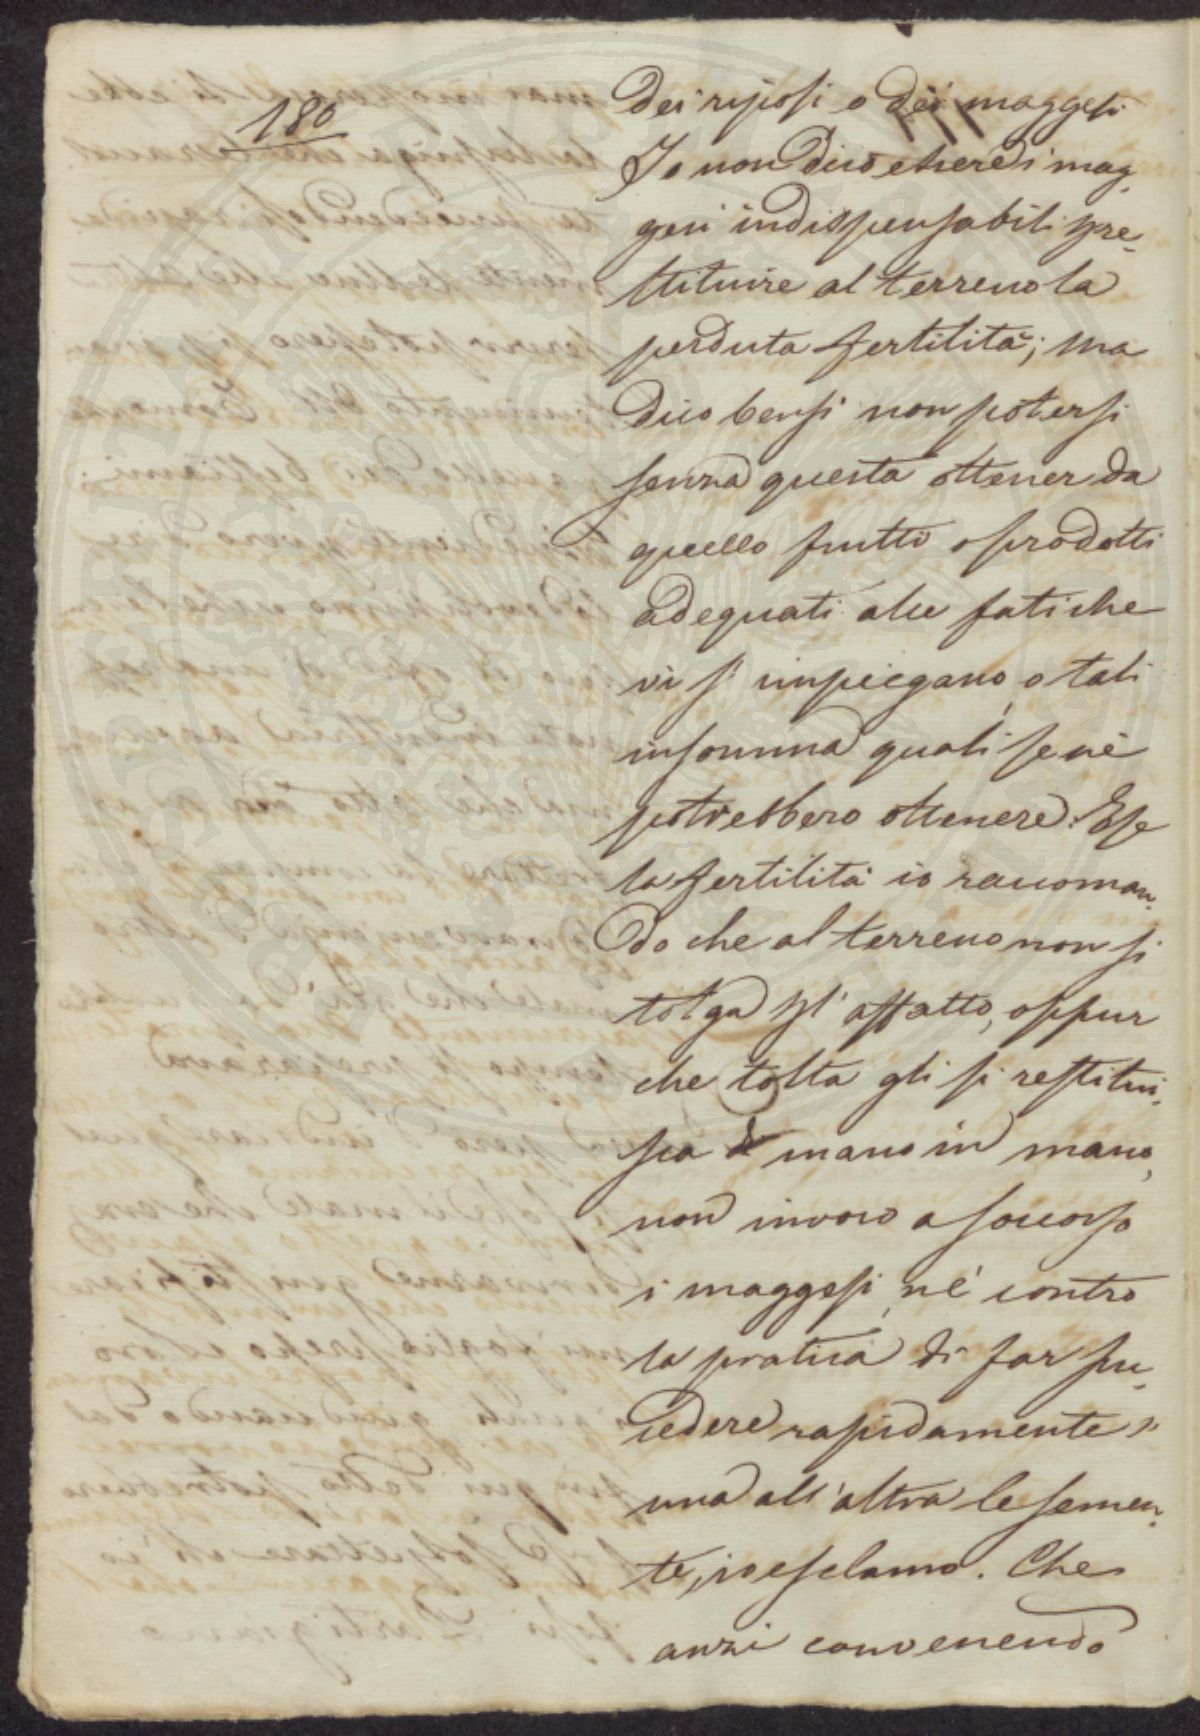 180
dei riposi o dei maggesi
Io non dico essere i mag¬
gesi indispensabili p re¬
stituire al terreno la
perduta fertilità; ma
dico bensì non potersi
senza questa ottener da
quello frutto o prodotti
adeguati alle fatiche
vi s' impiegano, o tali
insomma quali se nè
potrebbero ottenere. E se
la fertilità io raccoman¬
do che al terreno non si
tolga affatto, oppur
che tolta gli si restitui¬
sca di mano in mano,
non invoco a soccorso
i maggesi, nè contro
la pratica di far suc¬
cedere rapidamente l'
una all' altra le semen¬
te, io esclamo. Che
anzi convenendo